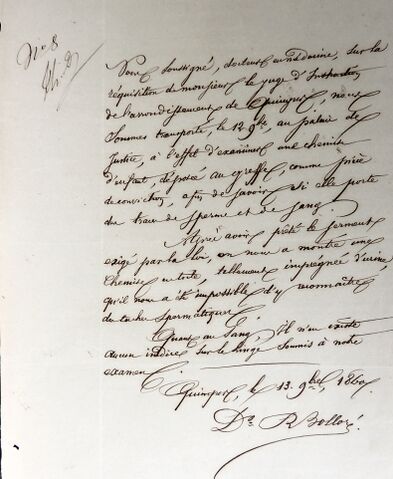 N° 8
Nous soussigné, docteur en médecine, sur la
réquisition de monsieur le juge d'Instruction
de l'arrondissement de Quimper, nous
sommes transporté, le 12 9bre, au palais de
Justice, à l'effet d'examiner une chemise
d'enfant, déposée au greffe, comme pièce
de conviction, afin de savoir si elle porte
des traces de sperme et de sang.
Après avoir prêté le serment
exigé par la loi, on nous a montré une
chemise en toile, tellement imprégnée d'urine,
qu'il nous a été impossible d'y reconnaître
des taches spermatiques.
Quant au sang, il n'en existe
aucun indice sur le linge soumis à notre
examen.
Quimper, le 13 9bre 1860
Dr R Bolloré